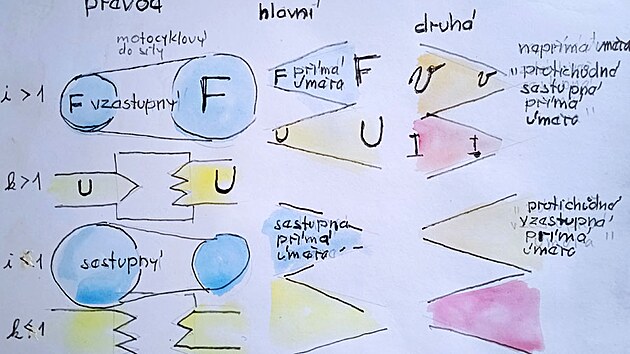 převod
hlavní
druhá
motocyklový
do síly
i > 1
F vzastupný F
F přímá F
úměra
v v
nepřímá úměra
"protichůdně
sestupná
přímá
úměra
U U
I I
k > 1
U U
i < 1
sestupný
sestupná
přímá
úměra
protichůdně
vzestupná
přímá
úměra
k ≤ 1